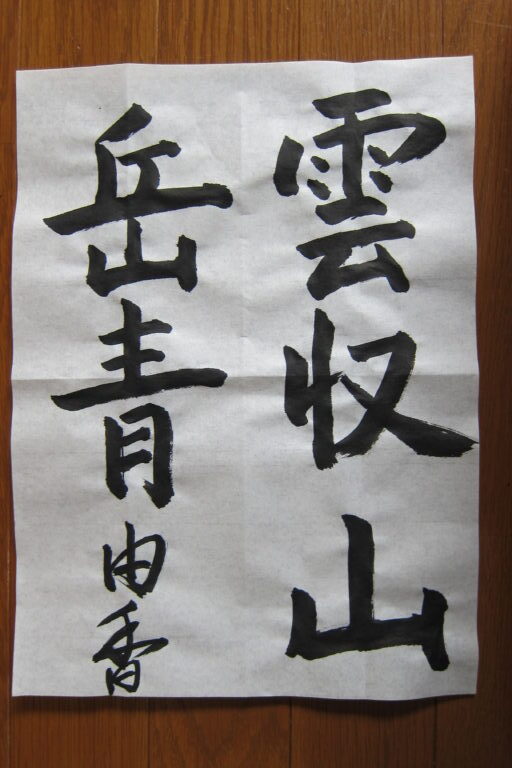 雲収山
岳青
由香